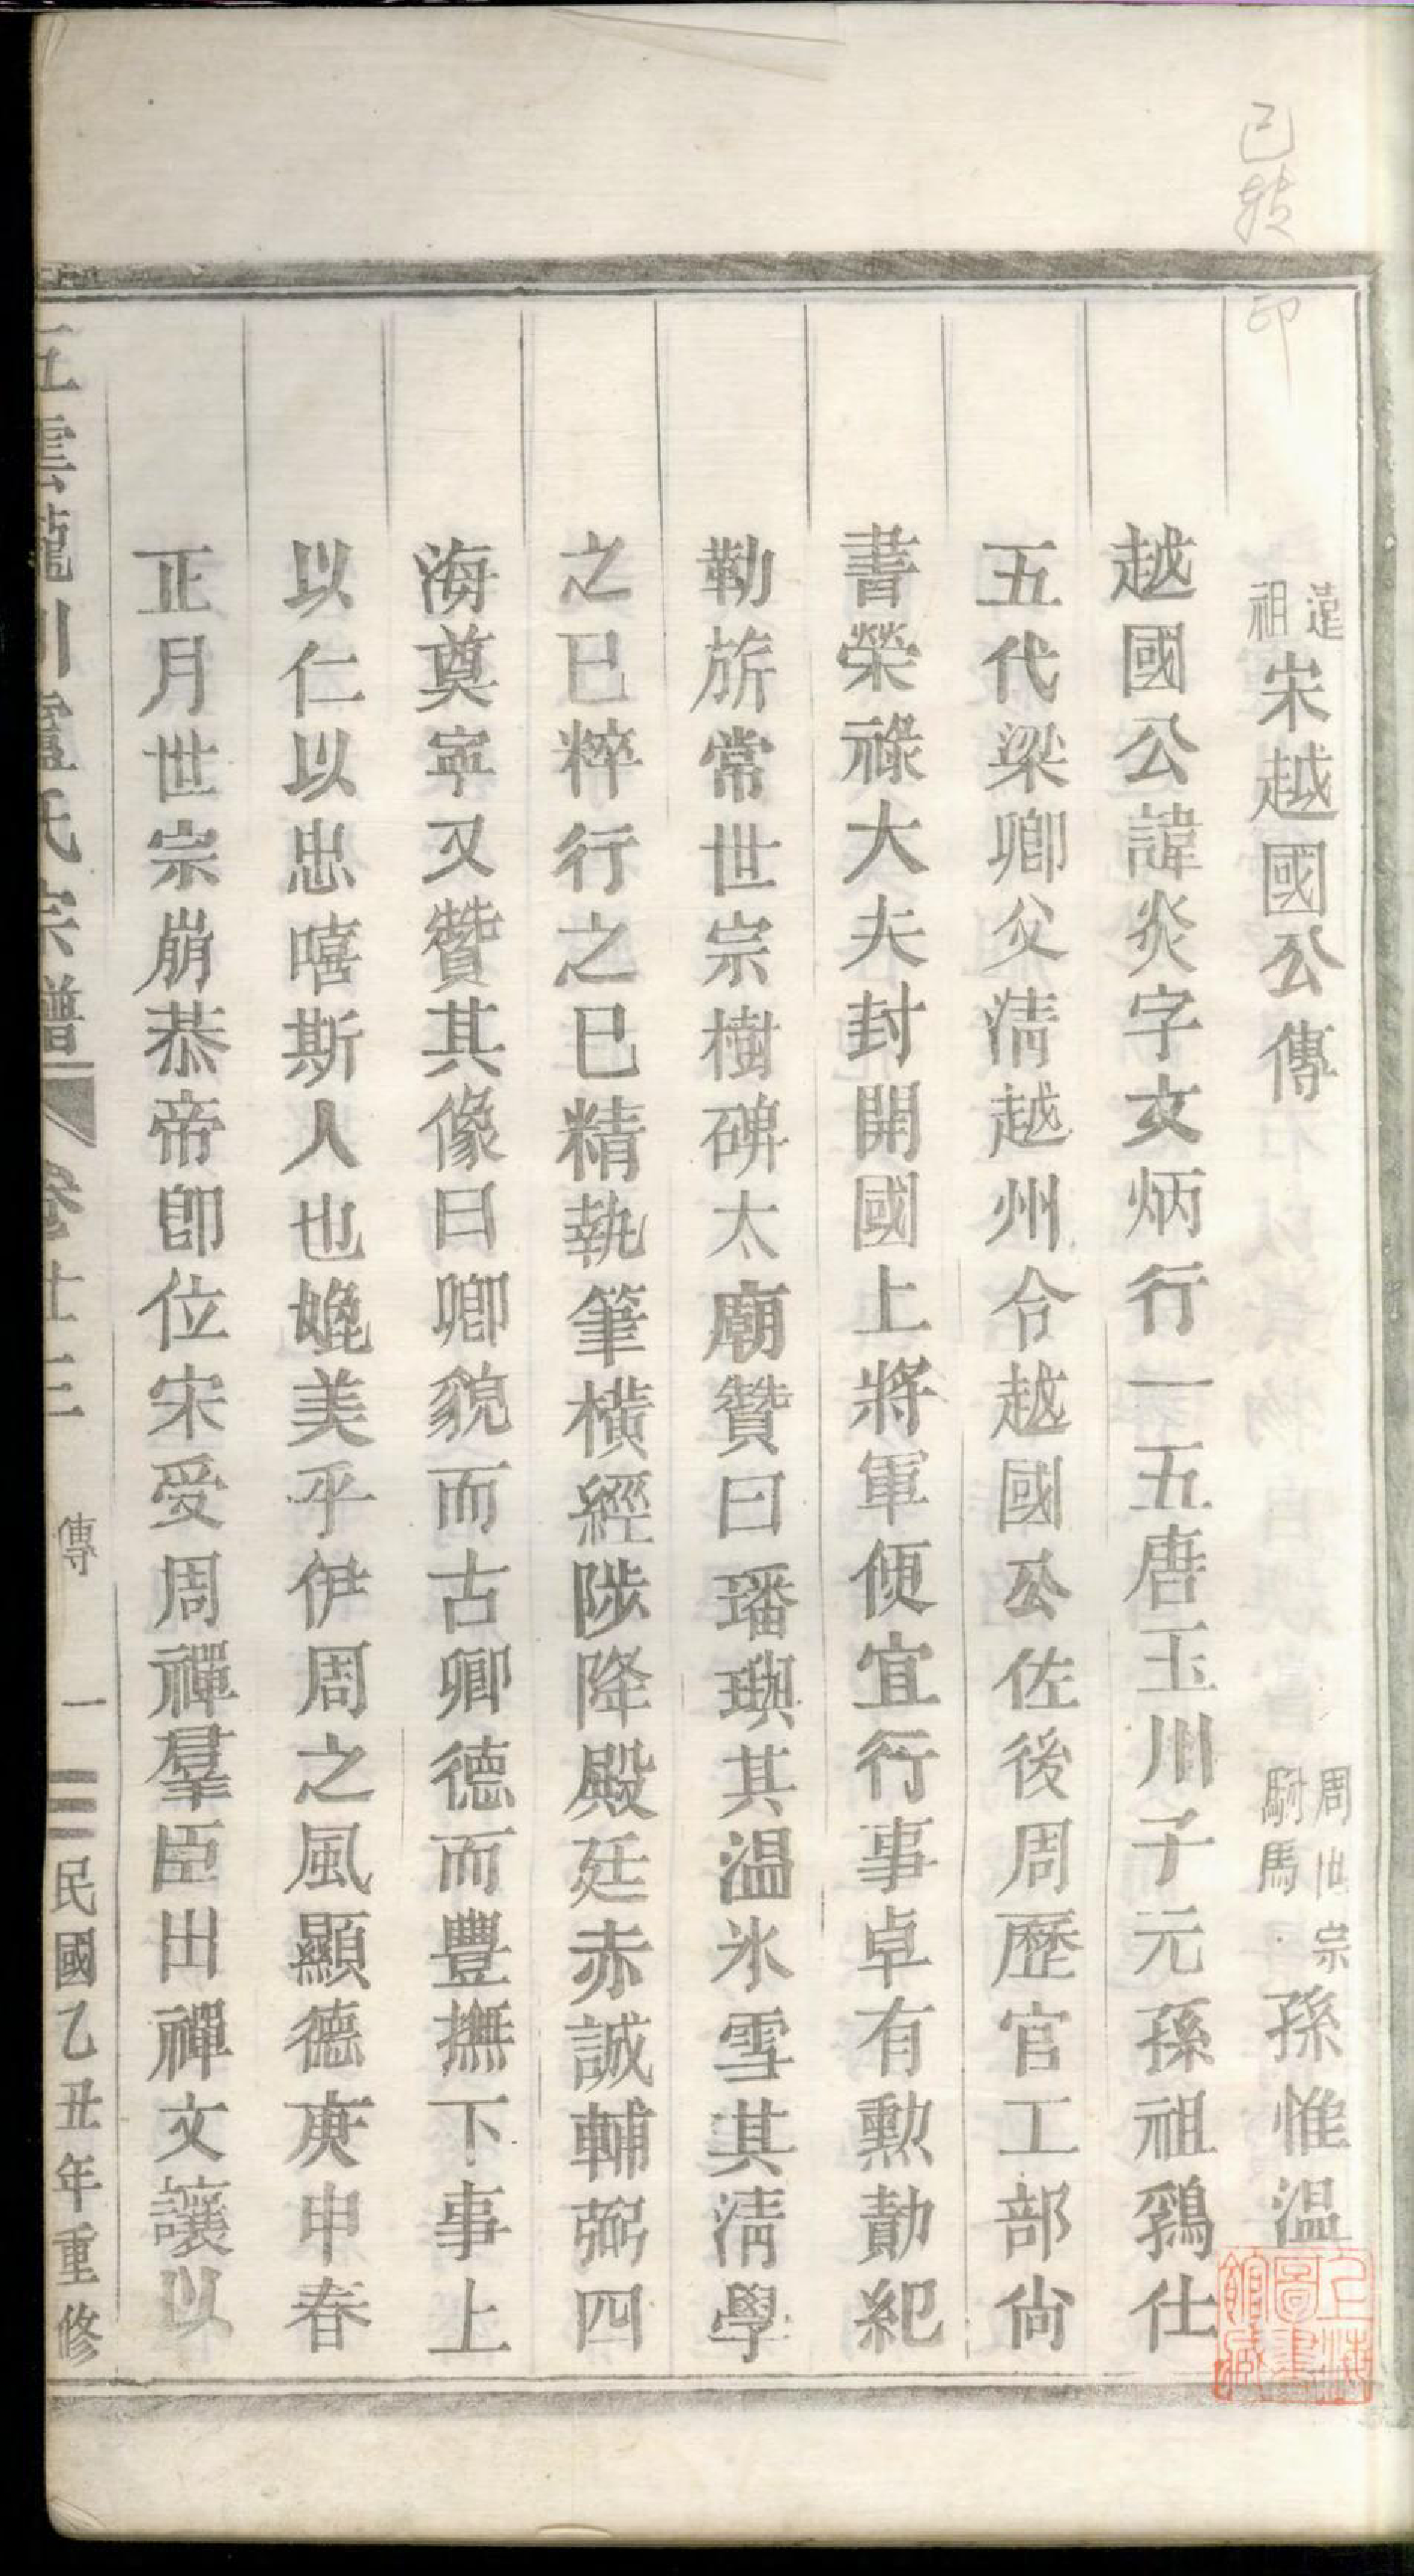 已转
印
遠祖宋越國公傳 周世宗駙馬孫惟温
越國公諱炎字文炳行一五唐玉川子元孫祖鷄仕
五代梁卿父清越州令越國公佐後周歷官工部尙
書榮祿大夫封開國上將軍便宜行事卓有勲勣紀
勒旂常世宗樹碑太廟贊曰璠璵其温氷雪其清學
之已粹行之已精執筆橫經陟降殿廷赤誠輔弼四
海奠寧又贊其像曰卿貌而古卿德而豐撫下事上
以仁以忠嘻斯人也媲美乎伊周之風顯德庚申春
正月世宗崩恭帝卽位宋受周禪羣臣出禪文讓以
五雲龍川盧氏宗譜 卷廿三 傳 一 民國乙丑年重修
上海圖書館藏